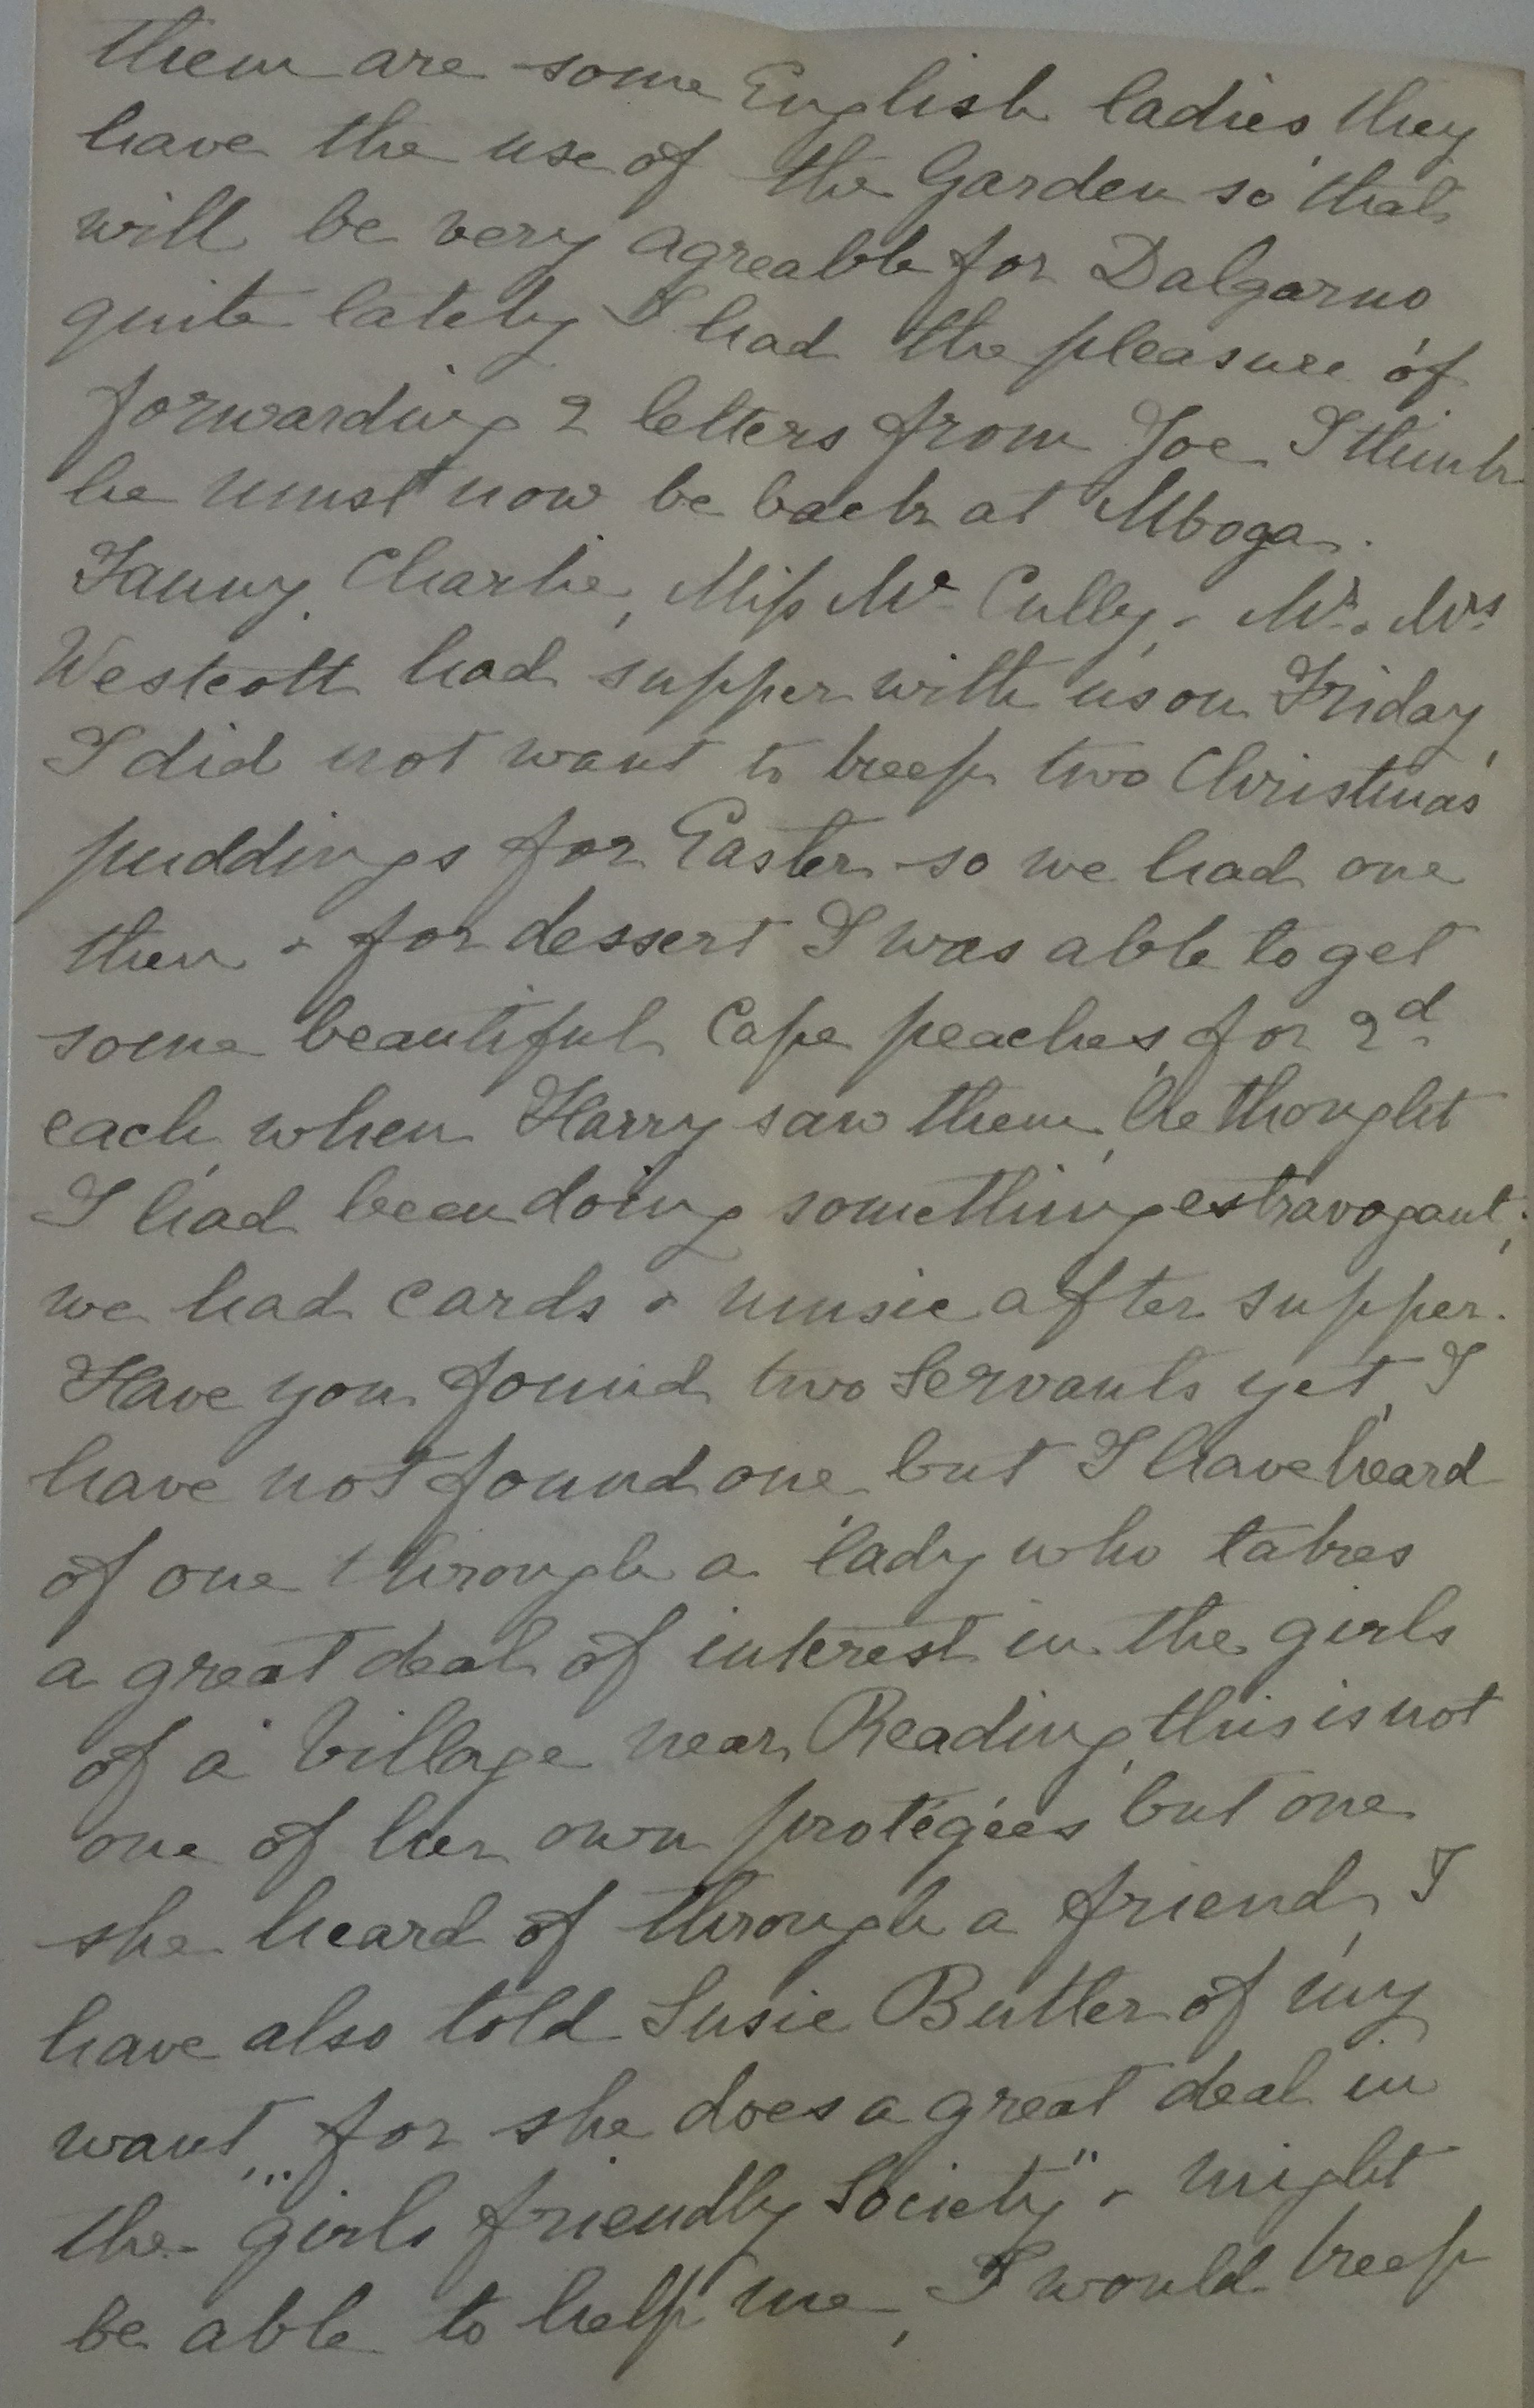 them are some English ladies, they
have the use of the Garden so that
will be very agreable for Dalgarno
quite lately I had the pleasure of
forwarding 2 letters from Joe I think
he must now be back at Mboga.
Fanny, Charlie, Miss Mc Cully, & Mr. Mrs
Westcott had supper with us on Friday,
I did not want to keep two Christmas
puddings for Easter so we had one
then & for dessert I was able to get
some beautiful Cape peaches for 2d
each, when Harry saw them, he thought
I had been doing something estravagant;
we had cards & music after supper.
Have you found two Servants yet, I
have not found one, but I have heard
of one through a lady who takes
a great deal of interest in the girls
of a Village near Reading, this is not
one of her own protégées but one
she heard of through a friend, I
have also told Susie Butler of my
want, for she does a great deal in
the "girls friendly Society" & might
be able to help me, I would keep